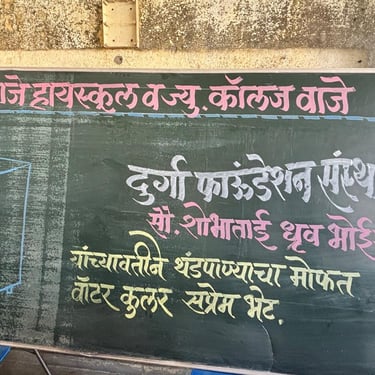 वाजे हायस्कुल व ज्यु. कॉलज वाजे
दुर्गा फाऊंडेशन संस्था
सौ. शोभाताई धृव भोई
यांच्यावतीने थंडपाण्याचा मोफत
वॉटर कुलर सप्रेम भेट.